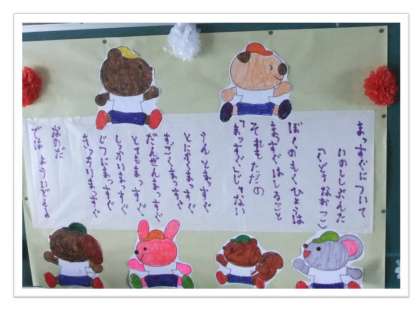 まっすぐについて
いのししぶんた
(くどうなおこ)
ぼくのもくひょうは
まっすぐはしること
それも ただの
「まっすぐ」じゃない
うんとまっすぐ
とにかくまっすぐ
すごくまっすぐ
だんぜんまっすぐ
とてもまっすぐ
しっかりまっすぐ
じつにまっすぐ
きっかりまっすぐ
なのだ
では